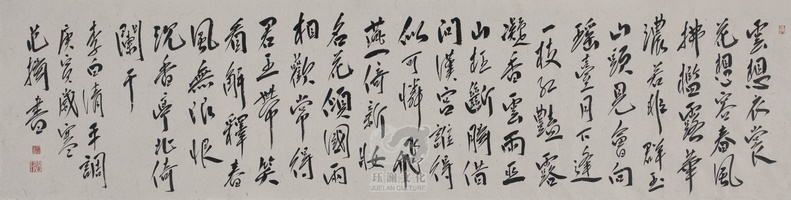 雲想衣裳
花想容春風
拂檻露華
濃若非群玉
山頭見會向
瑶臺月下逢
一枝紅豔露
凝香雲雨巫
山枉斷腸借
問漢宮誰得
似可憐飛
燕倚新妝
名花傾國兩
相歡常得
君王帶笑
看解釋春
風無限恨
沉香亭北倚
闌干
李白清平調
庚寅歲寒
范書
珏澜文化
JUELAN CULTURE